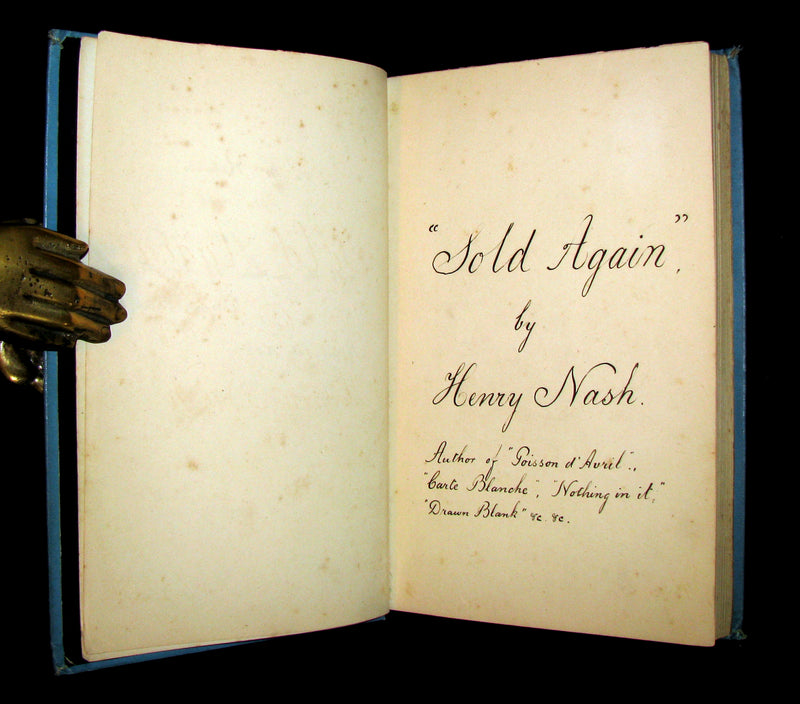 "Sold Again",
by
Henry Nash.
Author of "Poisson d'Avril",
"Carte Blanche", "Nothing in it,"
"Drawn Blank" &c. &c.